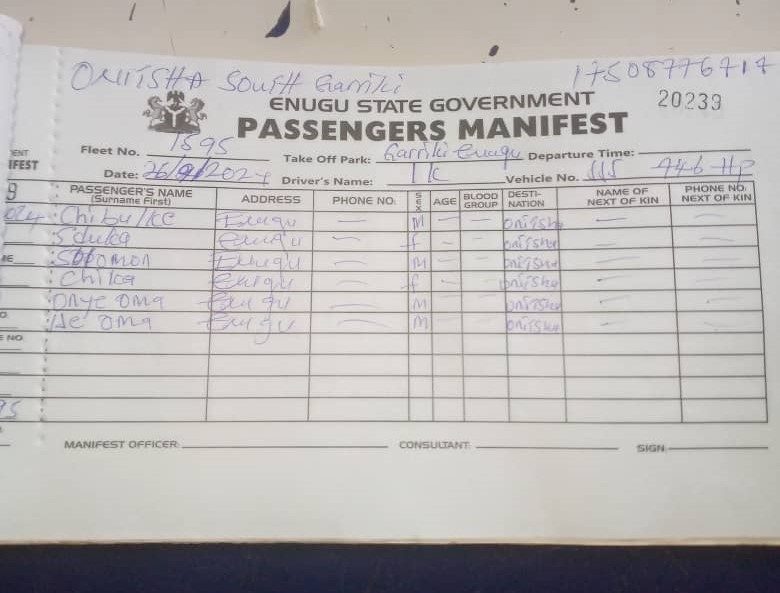 ONITSHA SOUTH Garriki 17508776717
ENUGU STATE GOVERNMENT 20239
PASSENGERS MANIFEST
Fleet No. 1595 Take Off Park: Garriki Enugu Departure Time:
IFEST
Date: 26/9/2024 Driver's Name: IK Vehicle No. 946 HP
9 PASSENGER'S NAME (Surname First) ADDRESS PHONE NO. SEX AGE BLOOD GROUP DESTI-NATION NAME OF NEXT OF KIN PHONE NO. NEXT OF KIN
024 Chibuike Enugu — M — — onitsha — —
Enugu — f — onitsha — —
Solomon Enugu M — — onitsha — —
Chika Enugu — f — onitsha — —
onyeoma Enugu — M onitsha — —
Enugu — M onitsha — —
E NO.
95
MANIFEST OFFICER: CONSULTANT: SIGN: